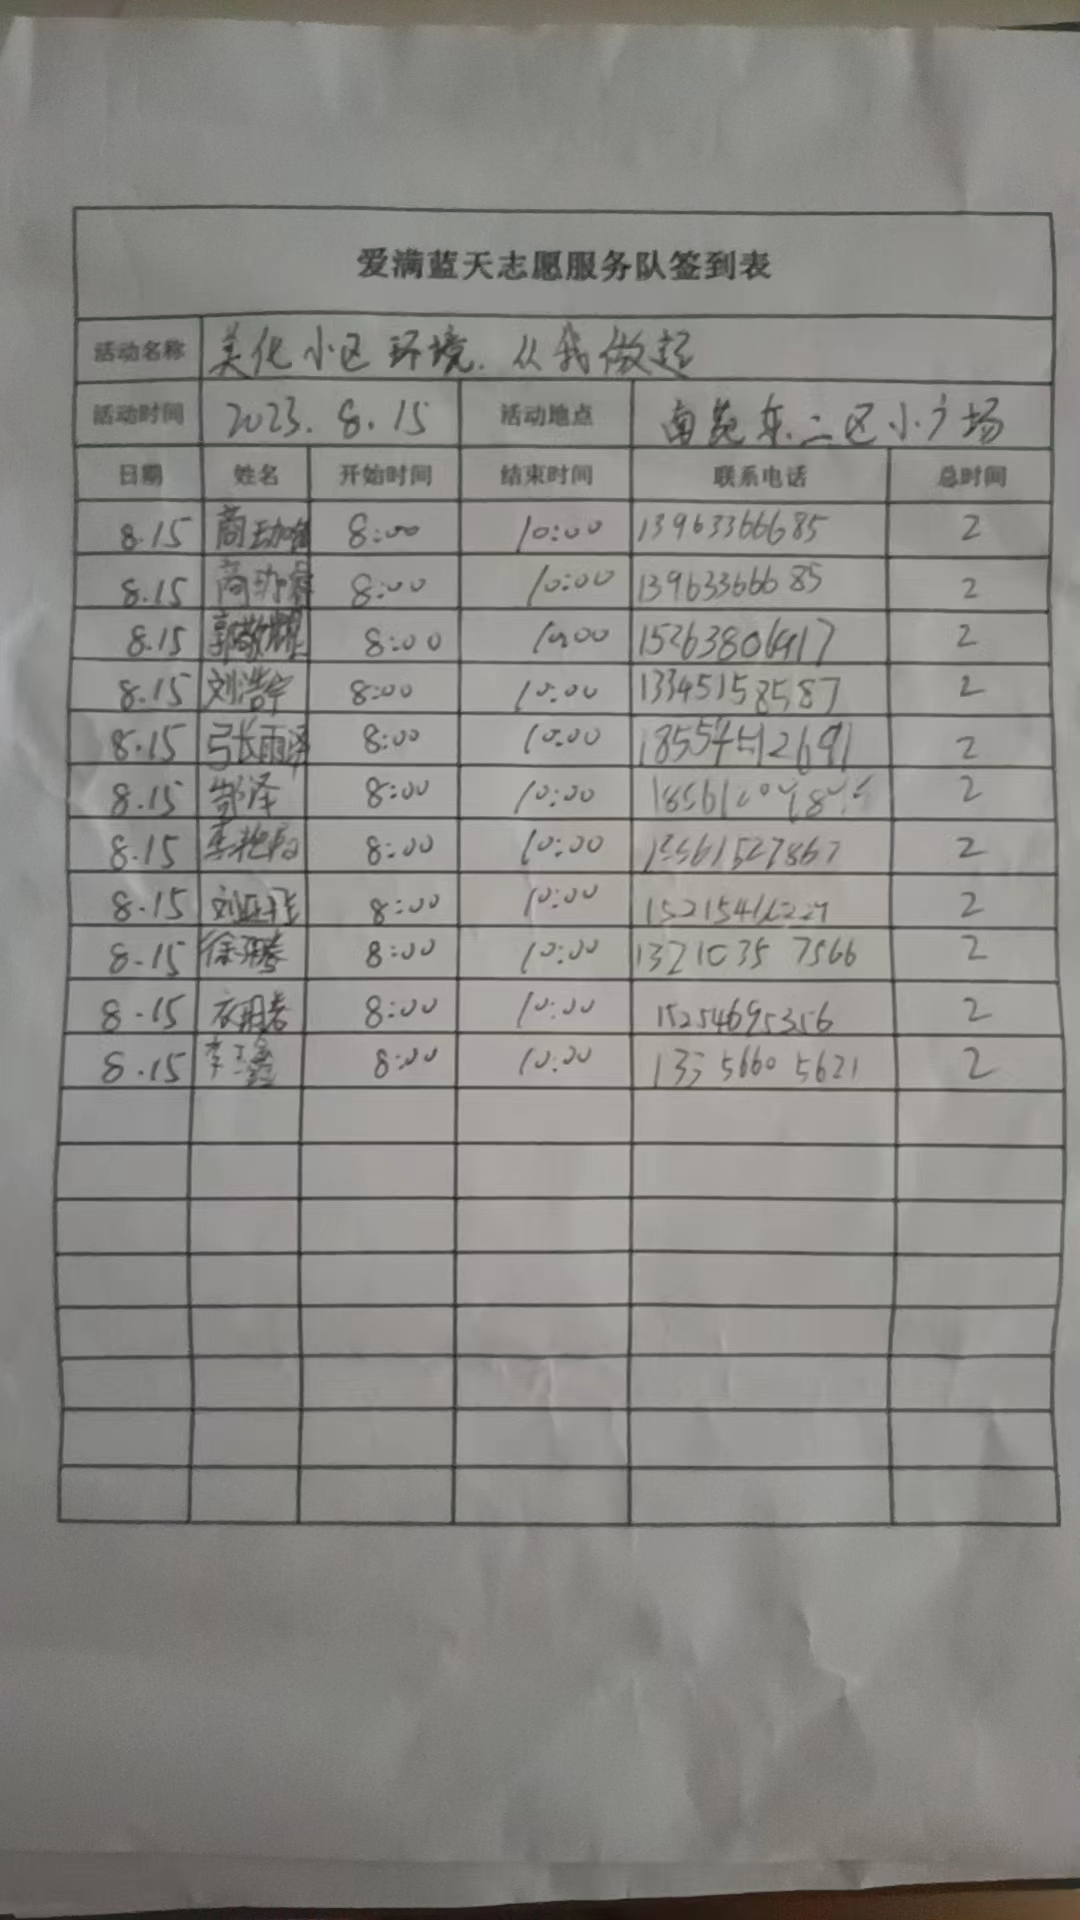 爱满蓝天志愿服务队签到表
活动名称 美化小区环境.从我做起
活动时间 2023.8.15 活动地点 南苑东二区小广场
日期 姓名 开始时间 结束时间 联系电话 总时间
8.15 8:00 10:00 13963366685 2
8.15 8:00 10:00 13963366685 2
8.15 郭敬耀 8:00 10:00 2
8.15 刘浩宇 8:00 10:00 13345158587 2
8.15 张雨泽 8:00 10:00 2
8.15 邹泽 8:00 10:00 2
8.15 8:00 10:00 13561527867 2
8.15 8:00 10:00 2
8-15 8:00 10:00 13210357566 2
8-15 8:00 10:00 15254695356 2
8.15 8:00 10:00 13356605621 2